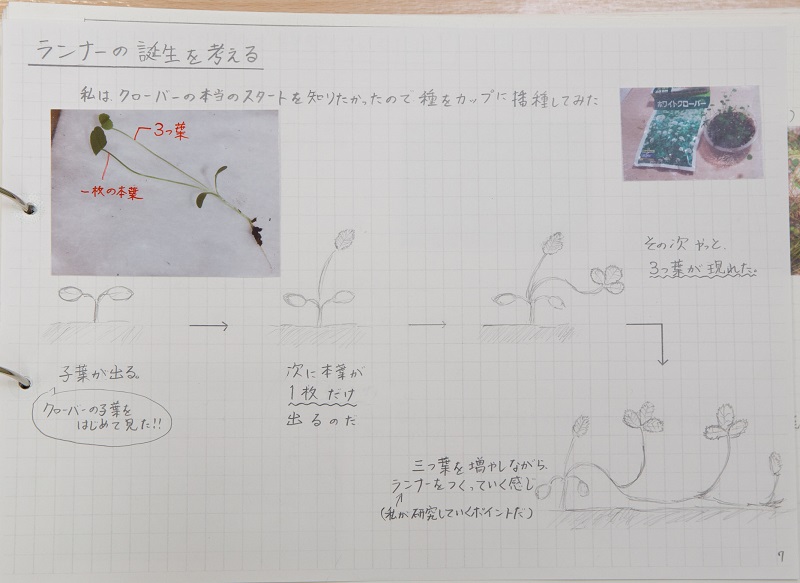 ランナーの誕生を考える
私は、クローバーの本当のスタートを知りたかったので種をカップに播種してみた
3つ葉
一枚の本葉
ホワイトクローバー
その次やっと、
3つ葉が現れた。
子葉が出る。
クローバーの子葉を
はじめて見た!!
次に本葉が
1枚だけ
出るのだ
三つ葉を増やしながら、
ランナーをつくっていく感じ
(私が研究していくポイントだ)
7